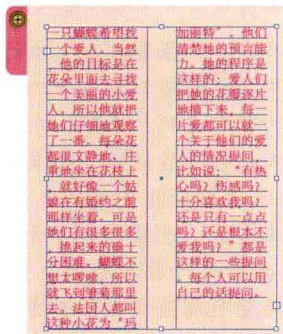 一只蝴蝶希望找
一个爱人。当然
，他的目标是在
花朵里面去寻找
一个美丽的小爱
人。所以他就把
她们仔细地观察
了一番。每朵花
都很文静地、庄
重地坐在花枝上
，就好像一个姑
娘在有婚约之前
那样坐着。可是
她们有很多很多
，挑起来的确十
分困难。蝴蝶不
想太啰嗦，所以
就飞到雏菊那里
去。法国人都叫
这种小花为“玛
加丽特”。他们
清楚她的预言能
力。她的程序是
这样的：爱人们
把她的花瓣逐片
地摘下来，每一
片爱都可以就一
个关于他们的爱
人的情况提问，
比如说：“有热
心吗？伤感吗？
十分喜欢我吗？
还是只有一点点
吗？还是根本不
爱我吗？”都是
这样的一些提问
。每个人可以用
自己的话提问。